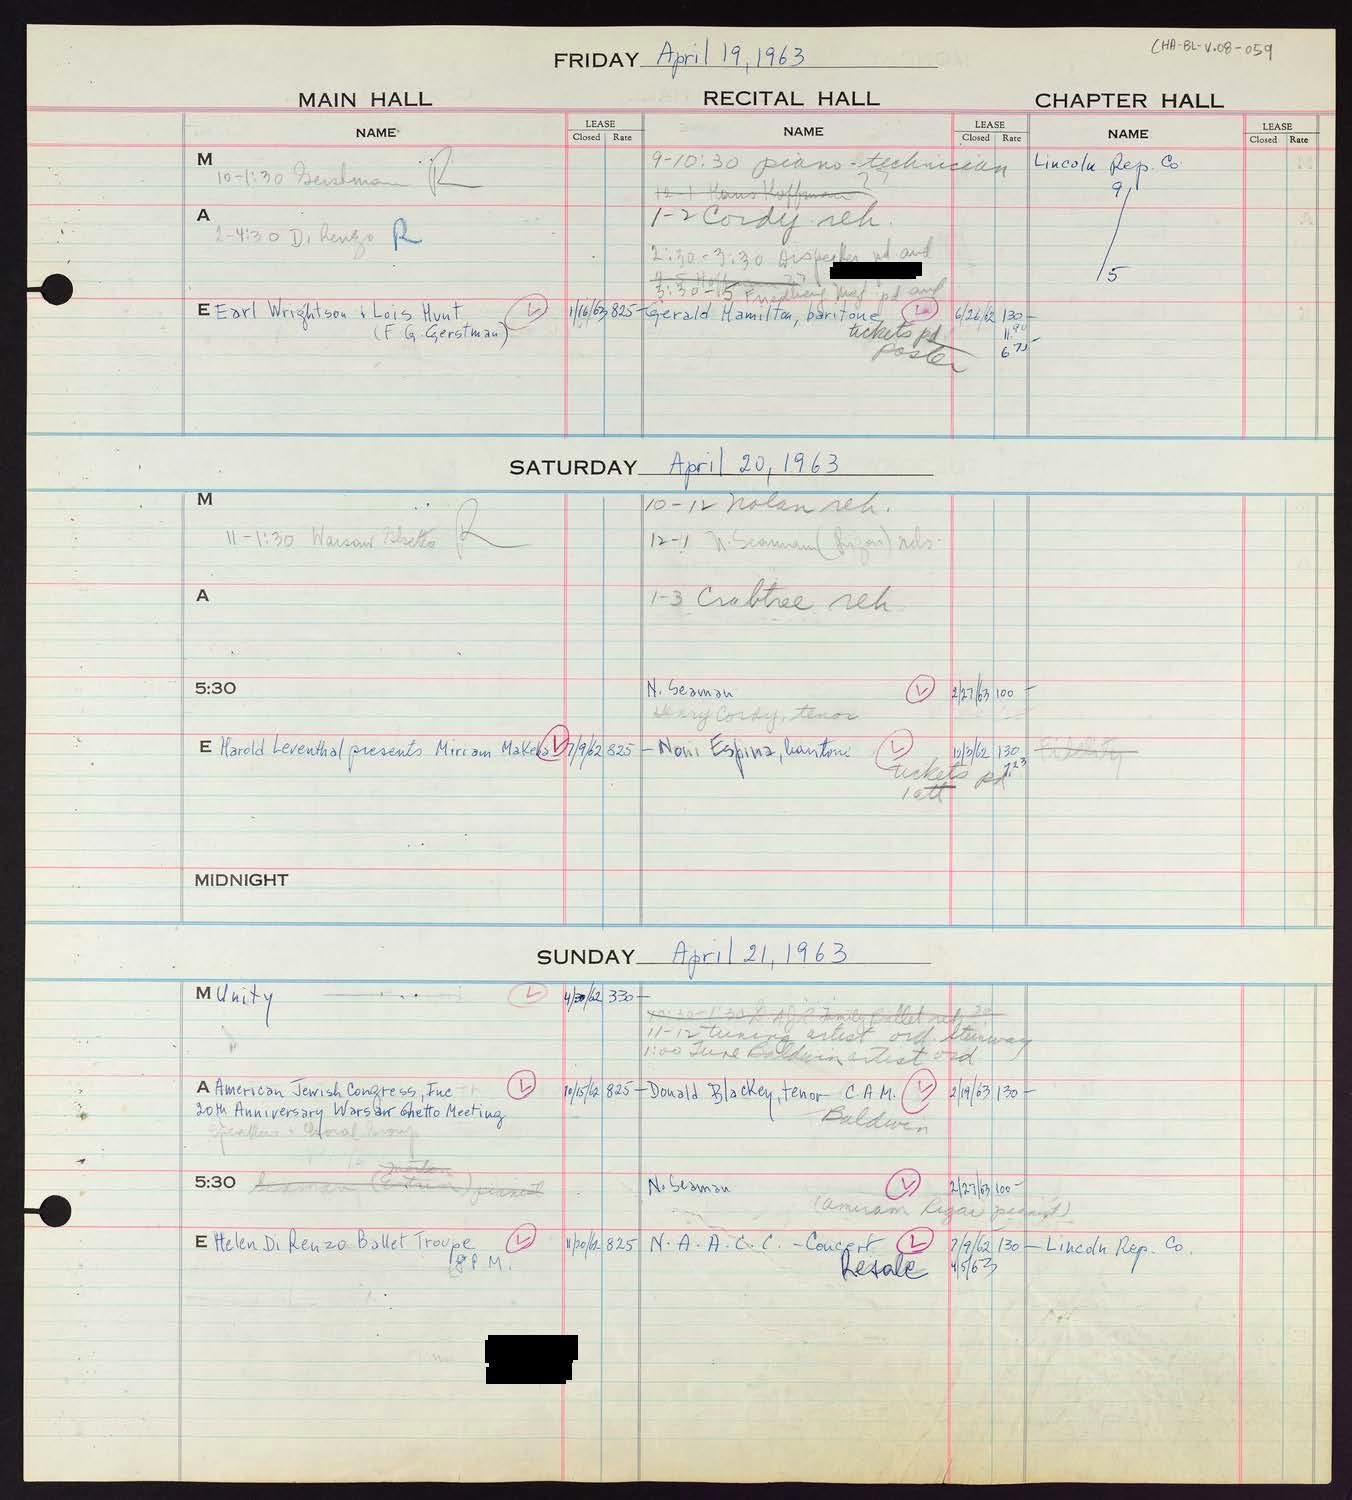 CHA-BL-V.08-059
FRIDAY April 19, 1963
MAIN HALL RECITAL HALL CHAPTER HALL
NAME LEASE Closed Rate NAME LEASE Closed Rate NAME LEASE Closed Rate
M
10-1:30 Gerstman R
9-10:30 piano-technician
Lincoln Rep. Co
9
5
12-1 Hans Hoffman
A
2-4:30 Di Renzo R
1-2 Cordy reh.
2:30-3:30 Dispeker pd and
3:30-5 Friedberg Mgt pd and
E Earl Wrightson & Lois Hunt 1/16/63 825-
(F G. Gerstman)
Gerald Hamilton, baritone 6/26/62 130-
tickets pd 11.90
poster
SATURDAY April 20, 1963
M
11-1:30 Warsaw Ghetto R
10-12 Nolan reh.
12-1 N. Seaman (Rigai) reh.
A
1-3 Crabtree reh
5:30
N. Seaman 2/27/63 100-
Henry Cordy, tenor
E Harold Leventhal presents Miriam Makeba 7/9/62 825-
Noni Espina, baritone 12/3/62 130
Fidelity
tickets pd 7.23
1 att
MIDNIGHT
SUNDAY April 21, 1963
M Unity 4/30/62 330-
11-12 tuning artist ord. Steinway
1:00 Tune Baldwin artist ord
A American Jewish Congress, Inc 10/15/62 825-
20th Anniversary Warsaw Ghetto Meeting
Speakers & Choral Group
Donald Blackey, tenor C.A.M. 2/19/63 130-
Baldwin
5:30
N. Seaman 2/27/63 100-
(Amiram Rigai pianist)
E Helen Di Renzo Ballet Troupe 11/20/62 825
8 P M.
N.A.A.C.C. - Concert 7/9/62 130-
Resale 4/5/63
Lincoln Rep. Co.